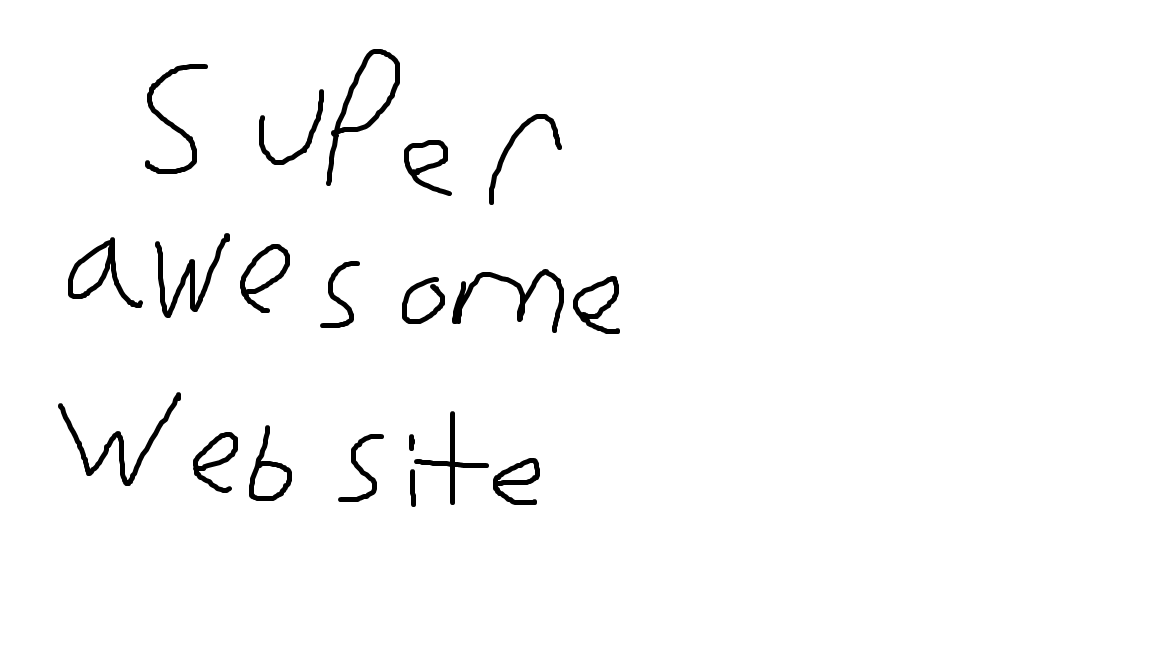 Super
awesome
Website